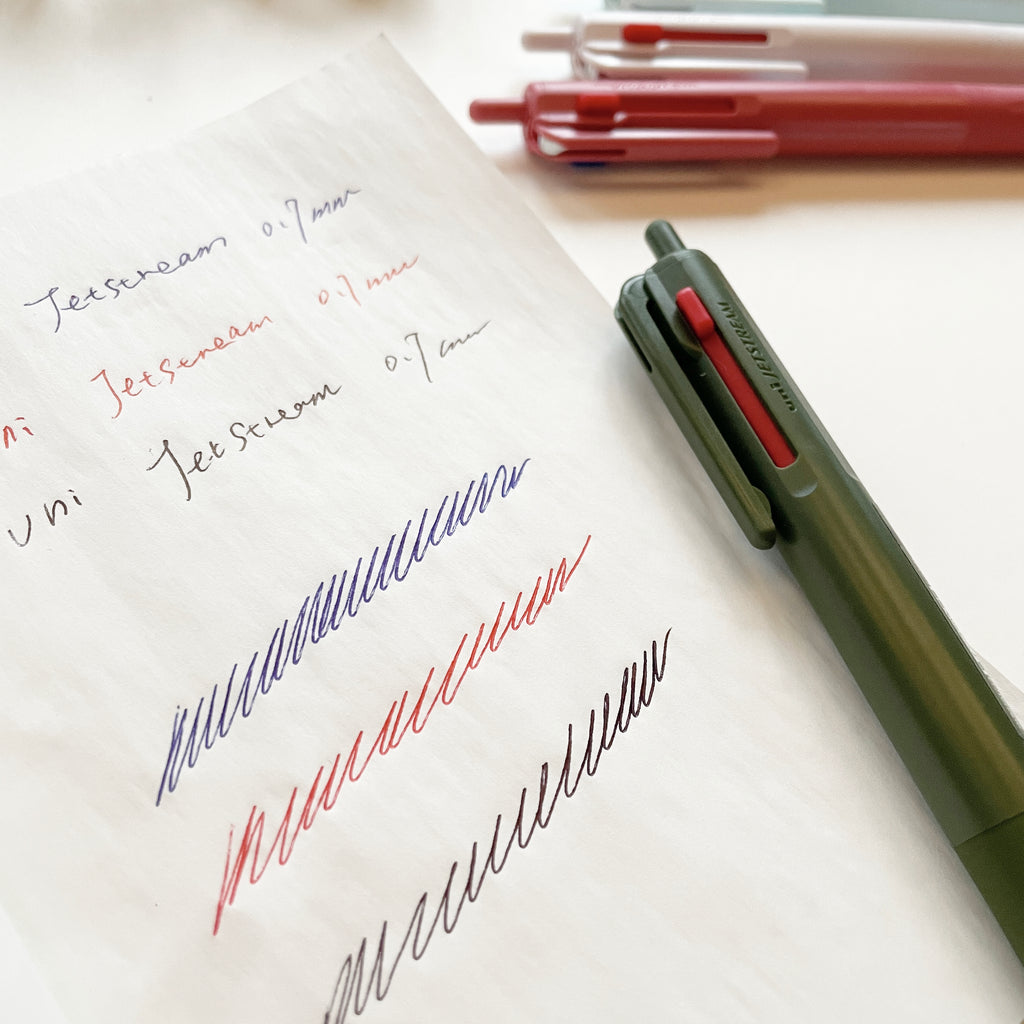 Jetstream 0.7 mm
ni Jetstream 0.7 mm
uni JetStream 0.7 mm
uni JETSTREAM